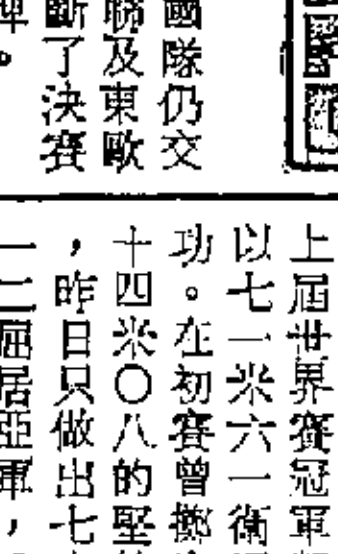 國隊仍交
聯及東歐
斷了決賽
牌。
上屆世界賽冠軍
以七一米六一衛
功。在初賽曾擲
十四米〇八的堅
,昨日只做出七
一二屈居亞軍,